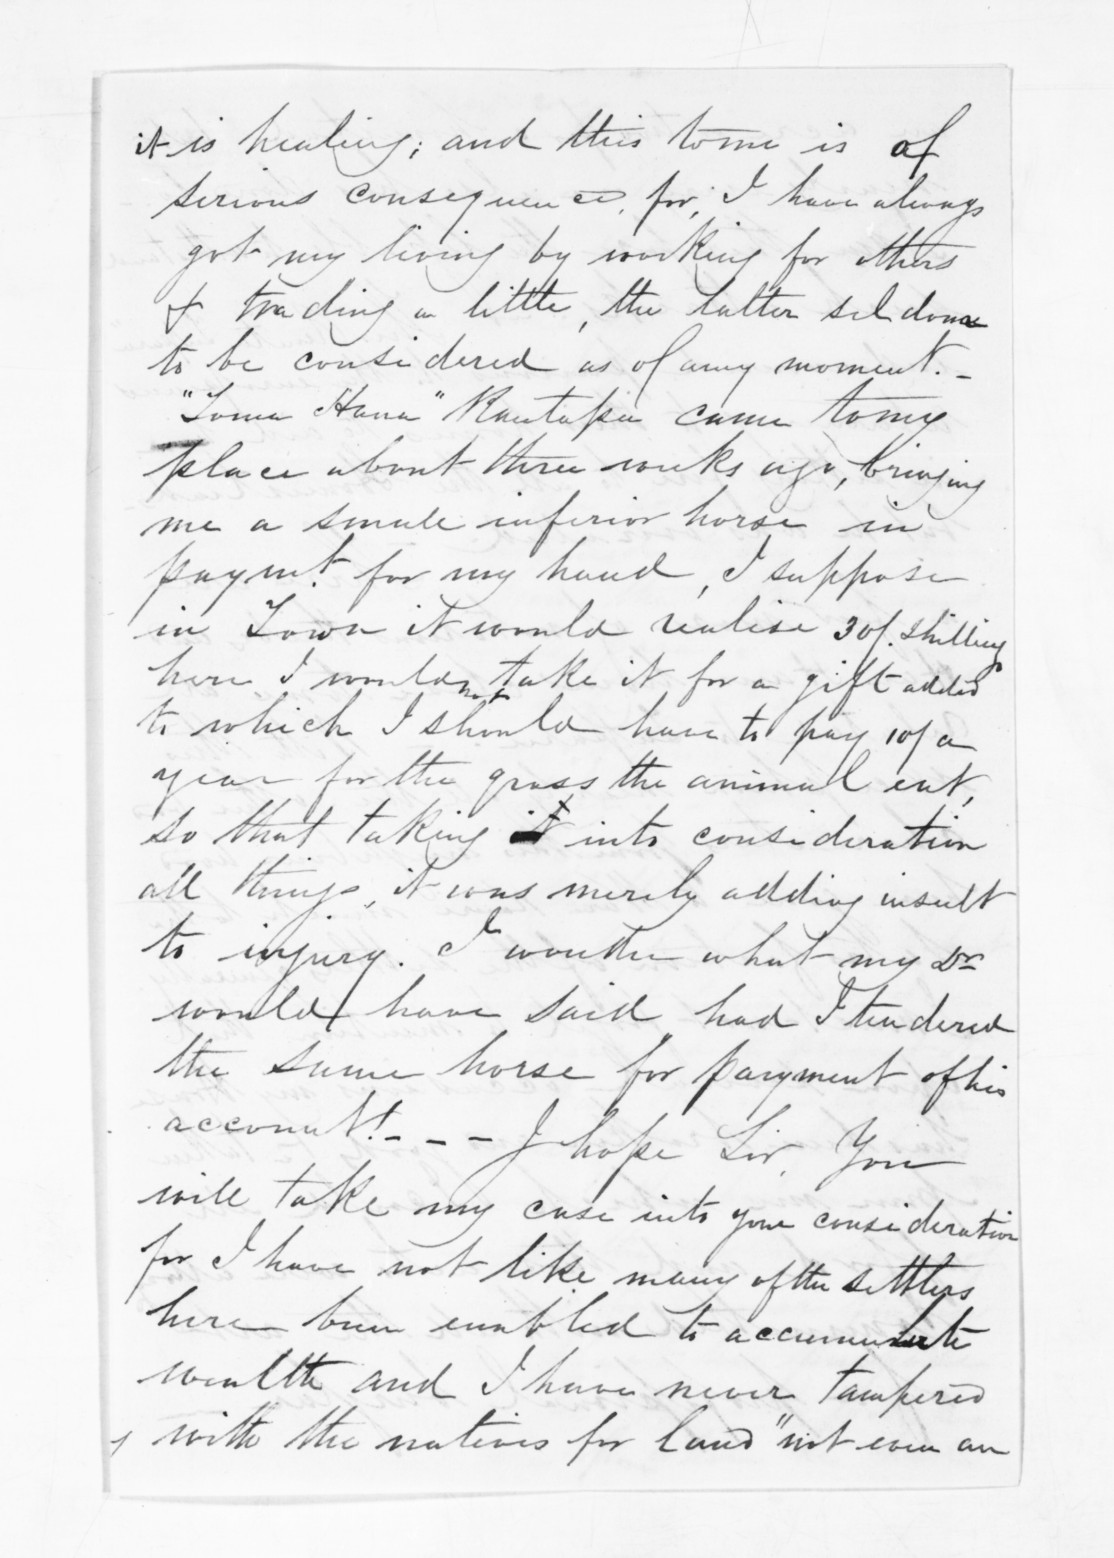 it is healing; and this to me is of
serious consequence, for, I have always
got my living by working for others
& trading a little, the latter seldom
to be considered as of any moment. -
"Toma Hana" Rautapu came to my
place about three weeks ago, bringing
me a small inferior horse in
paymt. for my hand, I suppose
in Town it would realise 30/. shillings
here I would not take it for a gift added
to which I should have to pay 10/ a
year for the grass the animal eat,
so that taking it into consideration
all things, it was merely adding insult
to injury. I wonder what my Dr
would have said had I tendered
the same horse for payment of his
account! - - - I hope Sir, You
will take my case into your consideration
for I have not like many of the settlers
here been enabled to accumulate
wealth and I have never tampered
with the natives for land "not even an